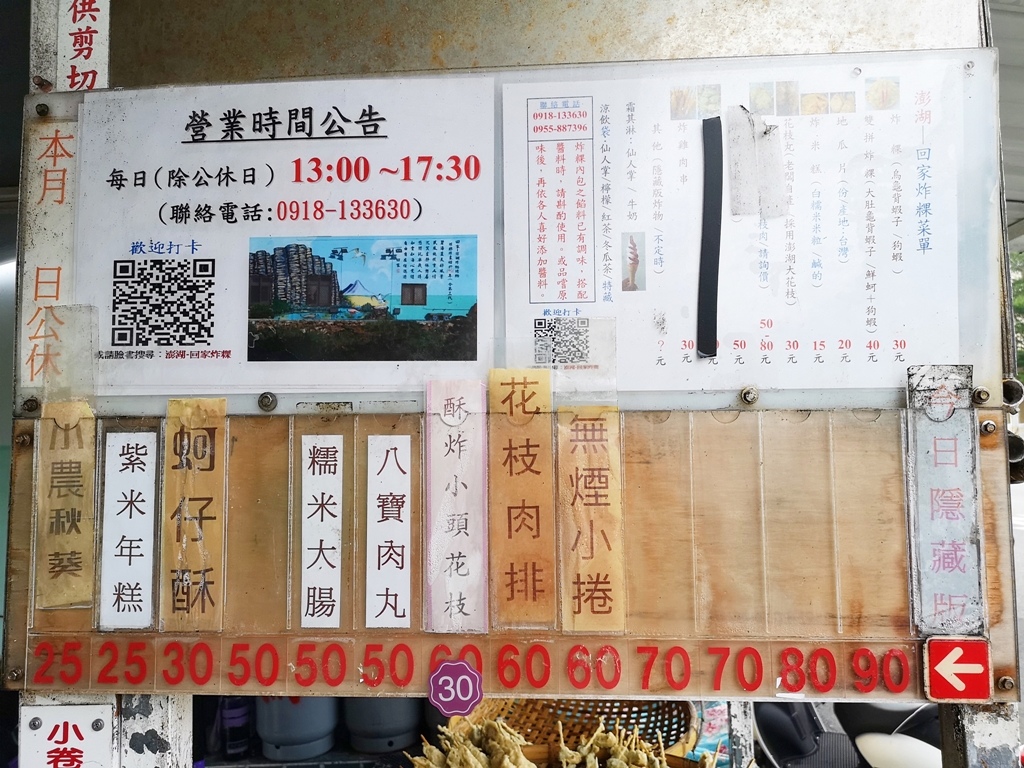 供剪切
本月 日公休
營業時間公告
每日(除公休日) 13:00 ~17:30
(聯絡電話:0918-133630)
歡迎打卡
或請臉書搜尋:澎湖-回家炸粿
聯絡電話
0918-133630
0955-887396
炸粿內包之餡料已有調味,搭配
醬料時,請斟酌使用。或品嚐原
味後,再依各人喜好添加醬料。
歡迎打卡
澎湖—回家炸粿菜單
炸 粿(烏龜背蝦子/狗蝦) 30元
雙拼炸粿(大肚龜背蝦子/鮮蚵+狗蝦) 40元
地瓜片(份/產地:台灣) 20元
炸米糕(白糯米米糕/鹹的) 15元
30元
50
80元
50元
炸雞肉串 30元
其他(隱藏版炸物/不定時) ?元
霜淇淋:仙人掌/牛奶
涼飲袋:仙人掌/檸檬/紅茶/冬瓜茶/特藏
小農秋葵
紫米年糕
蚵仔酥
糯米大腸
八寶肉丸
酥炸小頭花枝
花枝肉排
無煙小捲
今日隱藏版
25 25 30 50 50 50 60 60 60 70 70 80 90
30
小卷